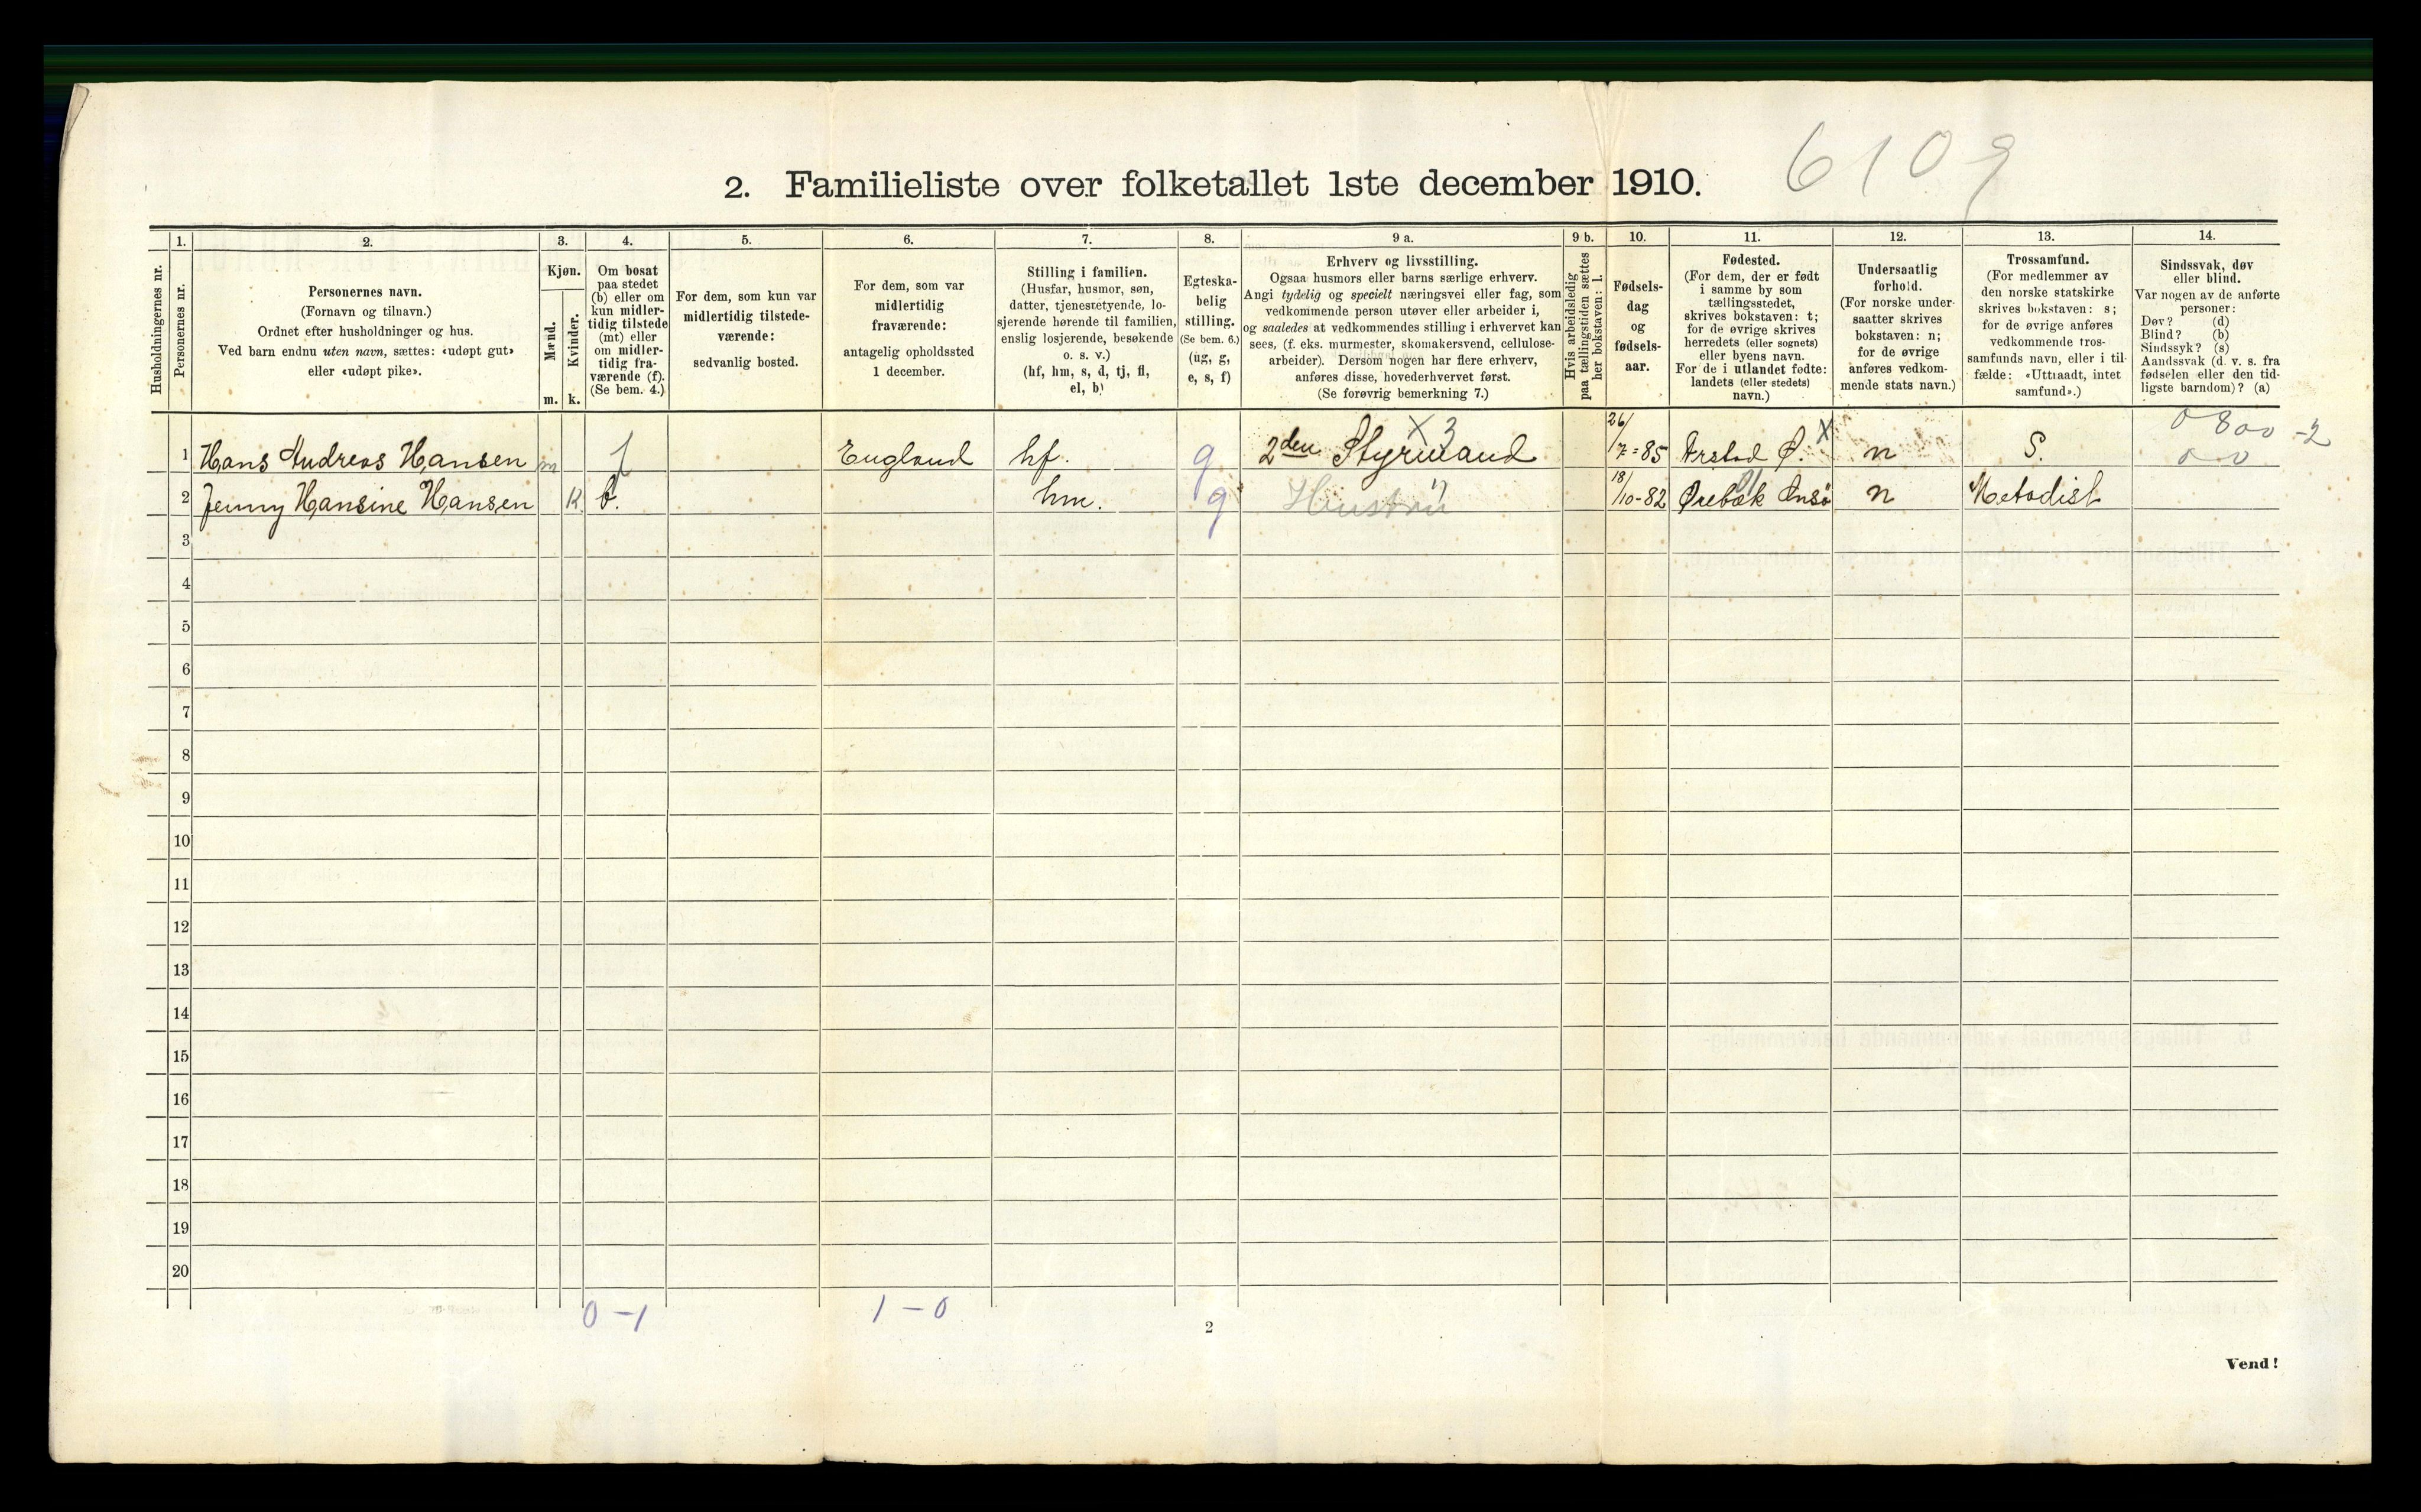 6109
2. Familieliste over folketallet 1ste december 1910.
Husholdningernes nr.
1.
Personernes nr.
2.
Personernes navn.
(Fornavn og tilnavn.)
Ordnet efter husholdninger og hus.
Ved barn endnu uten navn, sættes: «udøpt gut»
eller «udøpt pike».
3.
Kjøn.
Mænd.
Kvinder.
m. k.
4.
Om bosat
paa stedet
(b) eller om
kun midler-
tidig tilstede
(mt) eller
om midler-
tidig fra-
værende (f).
(Se bem. 4.)
5.
For dem, som kun var
midlertidig tilstede-
værende:
sedvanlig bosted.
6.
For dem, som var
midlertidig
fraværende:
antagelig opholdssted
1 december.
7.
Stilling i familien.
(Husfar, husmor, søn,
datter, tjenestetyende, lo-
sjerende hørende til familien,
enslig losjerende, besøkende
o. s. v.)
(hf, hm, s, d, tj, fl,
el, b)
8.
Egteska-
belig
stilling.
(Se bem. 6.)
(ug, g,
e, s, f)
9 a.
Erhverv og livsstilling.
Ogsaa husmors eller barns særlige erhverv.
Angi tydelig og specielt næringsvei eller fag, som
vedkommende person utøver eller arbeider i,
og saaledes at vedkommendes stilling i erhvervet kan
sees, (f. eks. murmester, skomakersvend, cellulose-
arbeider). Dersom nogen har flere erhverv,
anføres disse, hovederhvervet først.
(Se forøvrig bemerkning 7.)
9 b.
Hvis arbeidsledig
paa tællingstiden sættes
her bokstaven: l.
10.
Fødsels-
dag
og
fødsels-
aar.
11.
Fødested.
(For dem, der er født
i samme by som
tællingsstedet,
skrives bokstaven: t;
for de øvrige skrives
herredets (eller sognets)
eller byens navn.
For de i utlandet fødte:
landets (eller stedets)
navn.)
12.
Undersaatlig
forhold.
(For norske under-
saatter skrives
bokstaven: n;
for de øvrige
anføres vedkom-
mende stats navn.)
13.
Trossamfund.
(For medlemmer av
den norske statskirke
skrives bokstaven: s;
for de øvrige anføres
vedkommende tros-
samfunds navn, eller i til-
fælde: «Uttraadt, intet
samfund».)
14.
Sindssvak, døv
eller blind.
Var nogen av de anførte
personer:
Døv? (d)
Blind? (b)
Sindssyk? (s)
Aandssvak (d. v. s. fra
fødselen eller den tid-
ligste barndom)? (a)
X 3
0800-2
0-0
1 Hans Andreas Hansen m f England hf. g 2den Styrmand 26/7-85 Ørstad Ø. X n S.
2 Jenny Hansine Hansen K. b. hm. g Hustru 18/10-82 Ørebæk Onsø n Metodist
3
4
5
6
7
8
9
10
11
12
13
14
15
16
17
18
19
20
0-1 1-0
2
Vend!